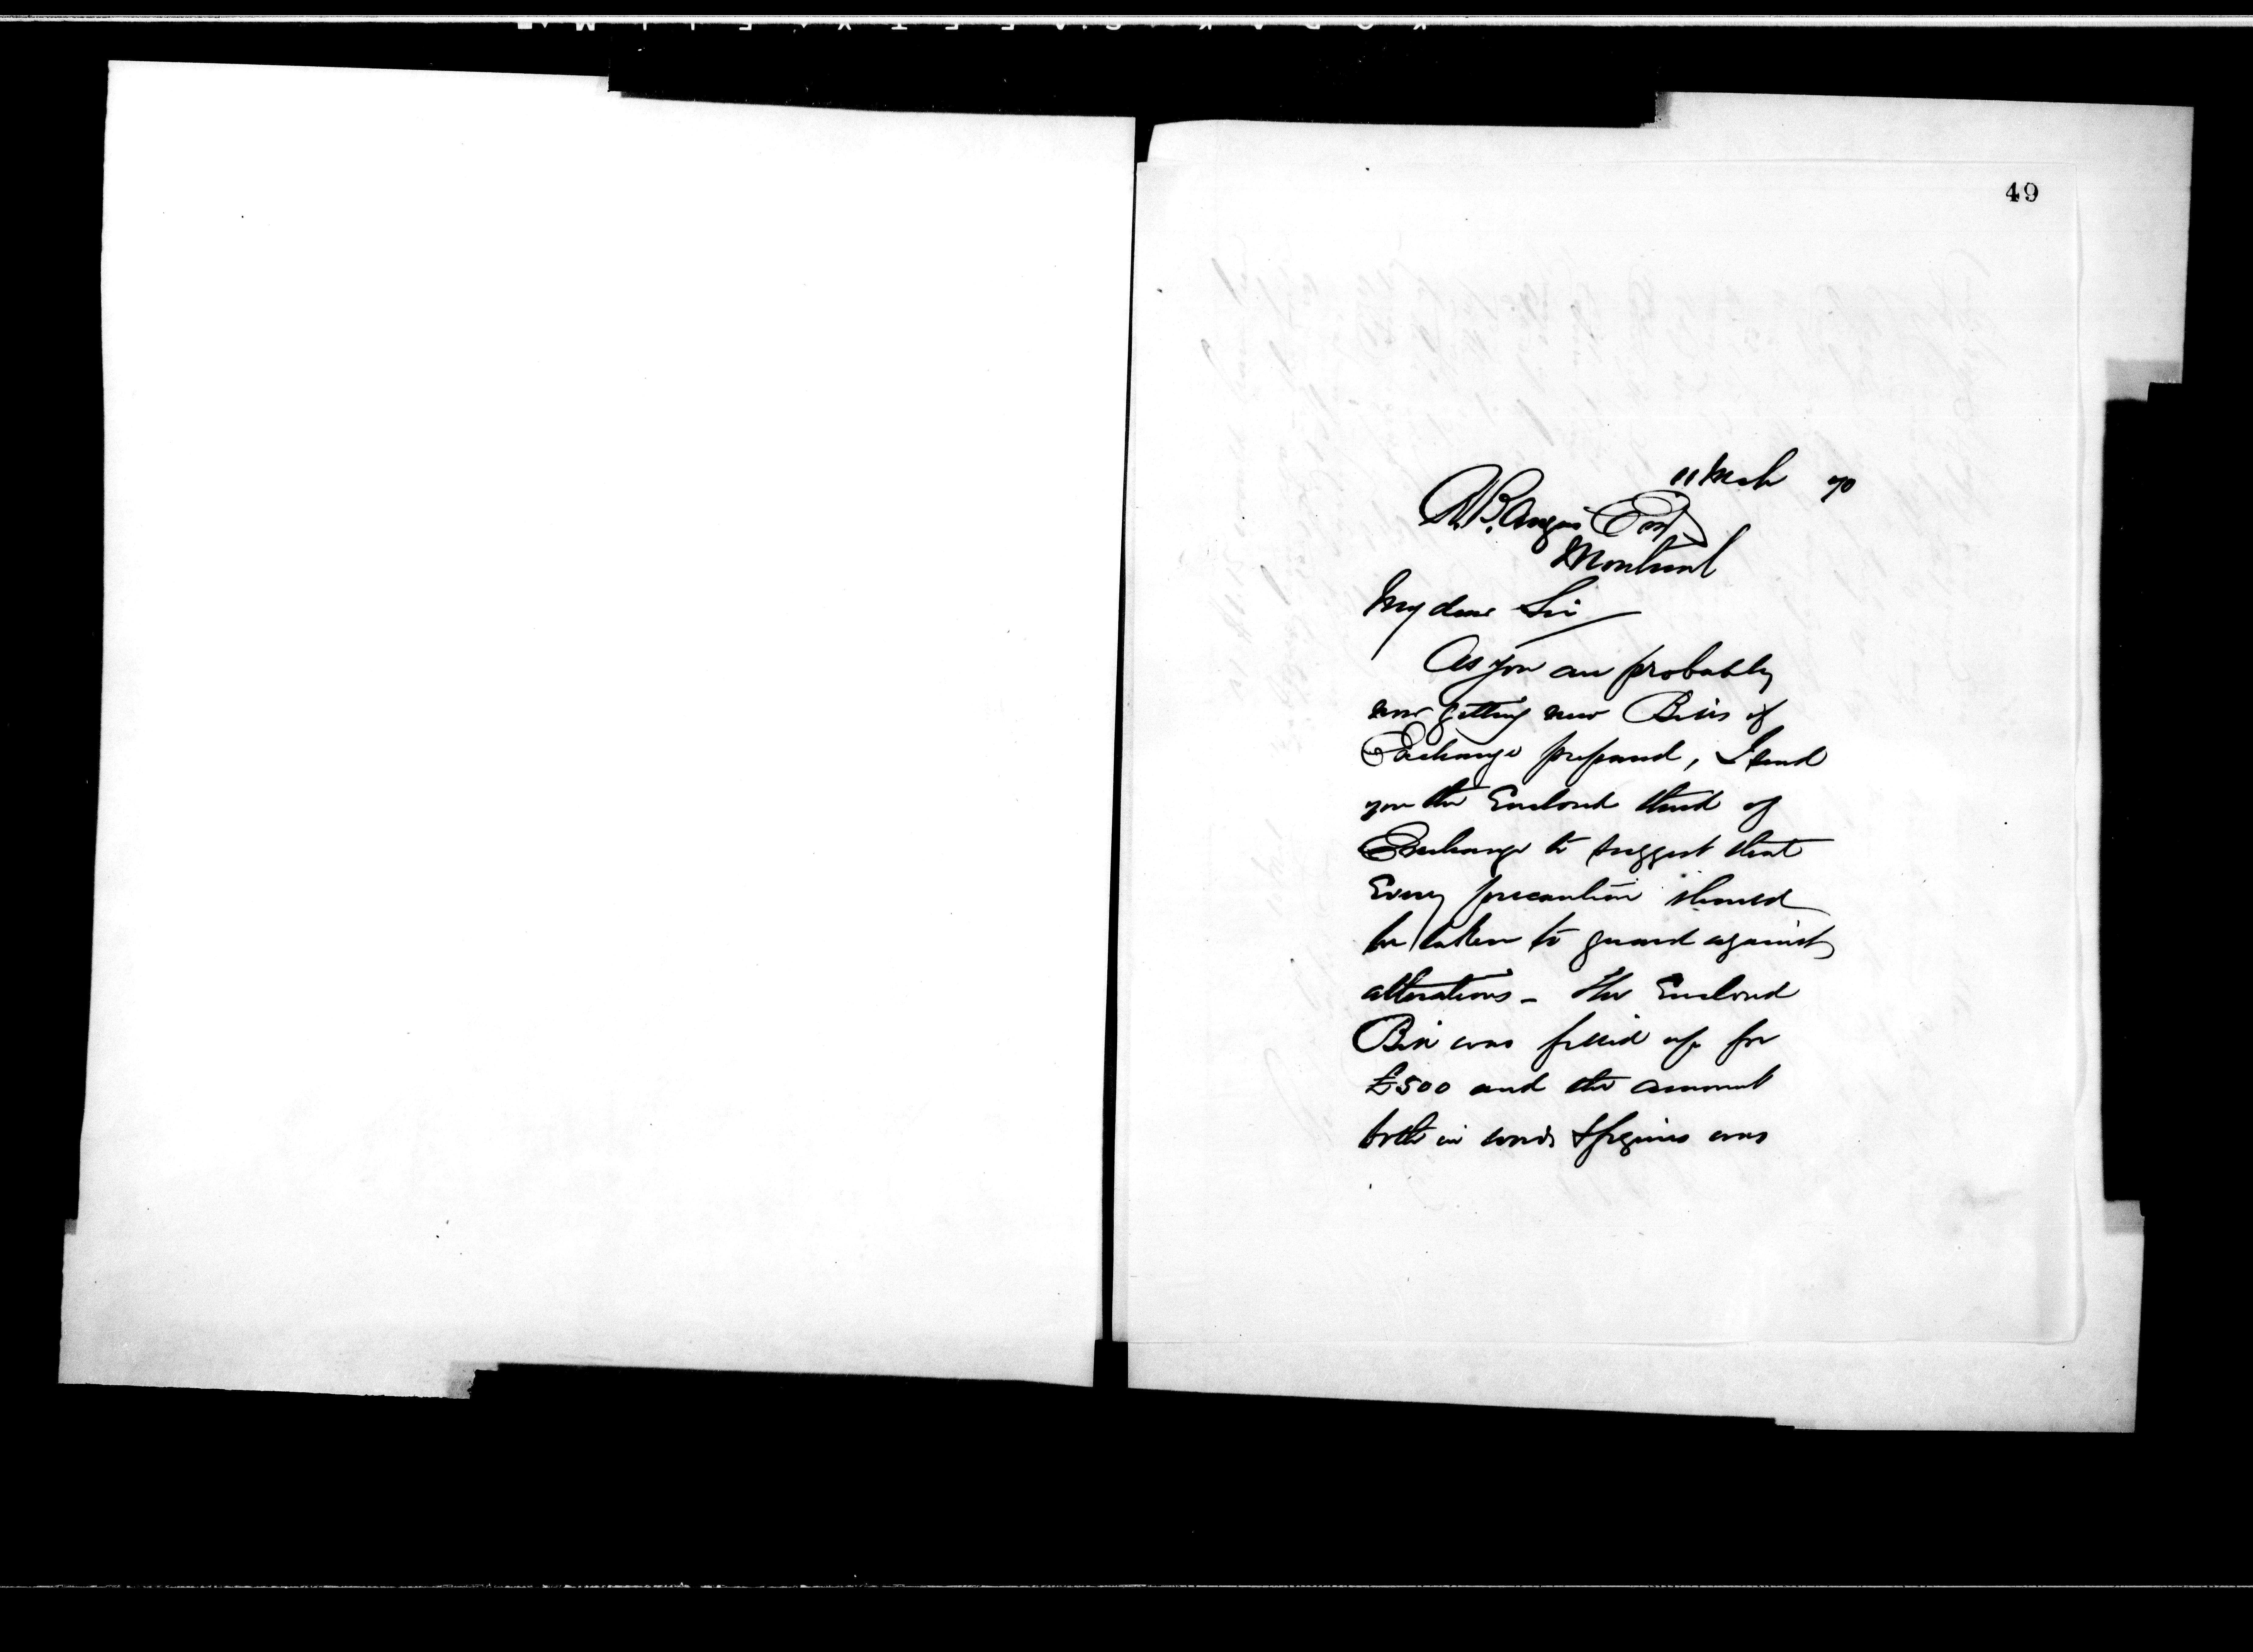 49
11 Mch 70
R.B. Angus Esq
Montreal
My dear Sir
As you are probably
now getting new Bills of
Exchange prepared, I send
you the Enclosed third of
Exchange to suggest that
Every precaution should
be taken to guard against
alterations - The Enclosed
Bill was filled up for
£500 and the amount
both in words & figures was